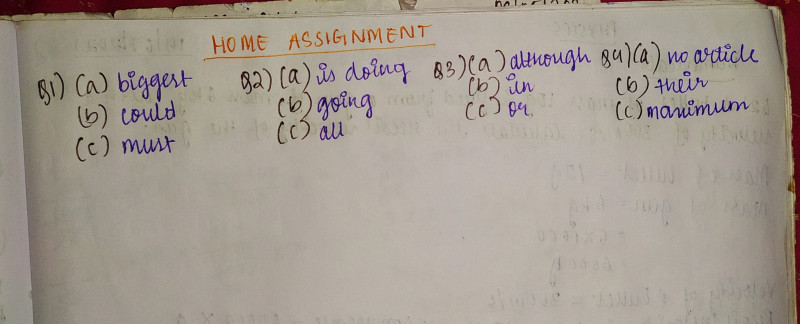 HOME ASSIGNMENT
Q1) (a) biggest
(b) could
(c) must
Q2) (a) is doing
(b) going
(c) all
Q3) (a) although
(b) in
(c) or
Q4) (a) no article
(b) their
(c) maximum